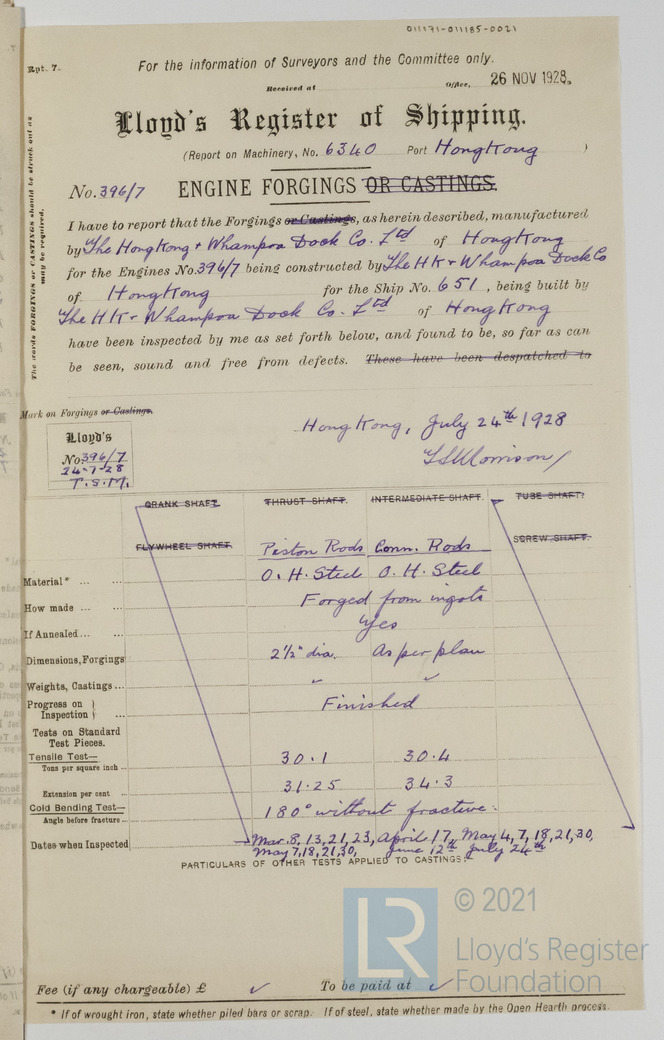 011171-011185-0021
Rpt. 7.
For the information of Surveyors and the Committee only.
Received at Office, 26 NOV 1928.
Lloyd's Register of Shipping.
(Report on Machinery, No. 6340 Port HongKong )
No. 396/7 ENGINE FORGINGS OR CASTINGS.
The words FORGINGS or CASTINGS should be struck out as
may be required.
I have to report that the Forgings or Castings, as herein described, manufactured
by The HongKong & Whampoa Dock Co. Ltd of HongKong
for the Engines No. 396/7 being constructed by The HK & Whampoa Dock Co
of HongKong for the Ship No. 651, being built by
The HK & Whampoa Dock Co. Ltd of HongKong
have been inspected by me as set forth below, and found to be, so far as can
be seen, sound and free from defects. These have been despatched to
Mark on Forgings or Castings.
Lloyd's
No. 396/7
24-7-28
T.S.M.
HongKong, July 24th 1928
T S Morrison
CRANK SHAFT. THRUST SHAFT. INTERMEDIATE SHAFT. TUBE SHAFT.
FLYWHEEL SHAFT. Piston Rods Conn. Rods SCREW SHAFT.
Material* ... ... O. H. Steel O. H. Steel
How made ... ... Forged from ingots
If Annealed... ... Yes
Dimensions, Forgings 2½" dia. As per plan
Weights, Castings ...
Progress on } Finished
Inspection } ...
Tests on Standard
Test Pieces.
Tensile Test— 30.1 30.4
Tons per square inch ...
Extension per cent ... 31.25 34.3
Cold Bending Test— 180° without fractive.
Angle before fracture ...
Dates when Inspected Mar. 8, 13, 21, 23, April 17, May 4, 7, 18, 21, 30,
May 7, 18, 21, 30, June 12th July 24th
PARTICULARS OF OTHER TESTS APPLIED TO CASTINGS.
© 2021
LR
Lloyd's Register
Foundation
Fee (if any chargeable) £ To be paid at
* If of wrought iron, state whether piled bars or scrap. If of steel, state whether made by the Open Hearth process.